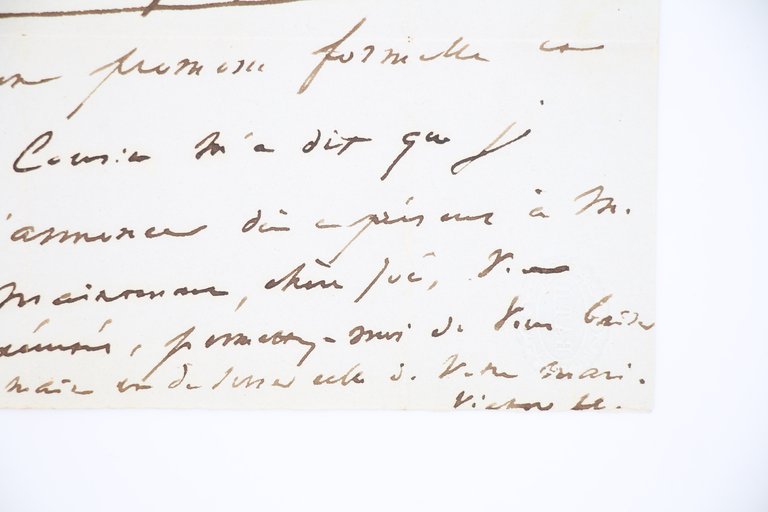 promesse formelle en
Cousin m'a dit que j
annoncer dès à présent à M.
Maintenant, chère fée, Vous
permettez-moi de Vous baiser
main et de serrer celle de Votre mari.
Victor H.